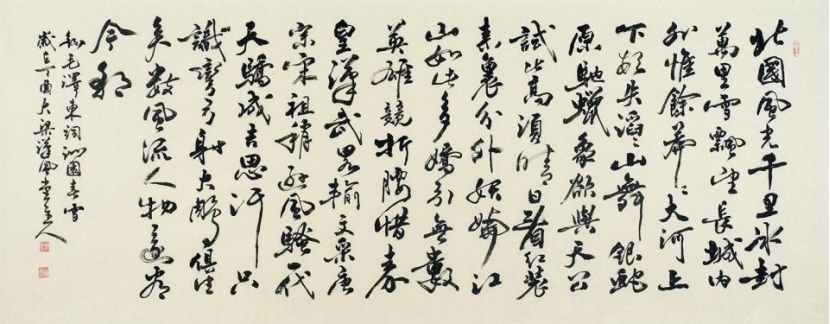 北國風光千里冰封
萬里雪飄望長城内
外惟餘莽〻大河上
下頓失滔〻山舞銀蛇
原馳蠟象欲與天公
試比高須晴日看紅裝
素裹分外妖嬈江
山如此多嬌引無數
英雄競折腰惜秦
皇漢武略輸文采唐
宗宋祖稍遜風騷一代
天驕成吉思汗只
識彎弓射大鵰俱往
矣數風流人物還看
今朝
毛澤東詞沁園春雪
歲在丁酉大梁漢風堂主人